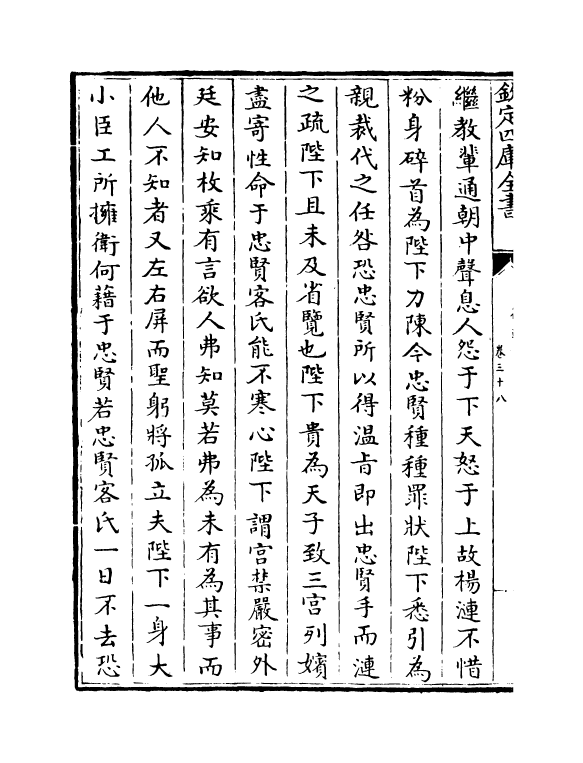 欽定四庫全書
卷三十八
繼教輩通朝中聲息人怨于下天怒于上故楊漣不惜
粉身碎首為陛下力陳今忠賢種種罪狀陛下悉引為
親裁代之任咎恐忠賢所以得温㫖即出忠賢手而漣
之疏陛下且未及省覽也陛下貴為天子致三宫列嬪
盡寄性命于忠賢客氏能不寒心陛下謂宫禁嚴密外
廷安知枚乘有言欲人弗知莫若弗為未有為其事而
他人不知者又左右屏而聖躬將孤立夫陛下一身大
小臣工所擁衛何藉于忠賢若忠賢客氏一日不去恐